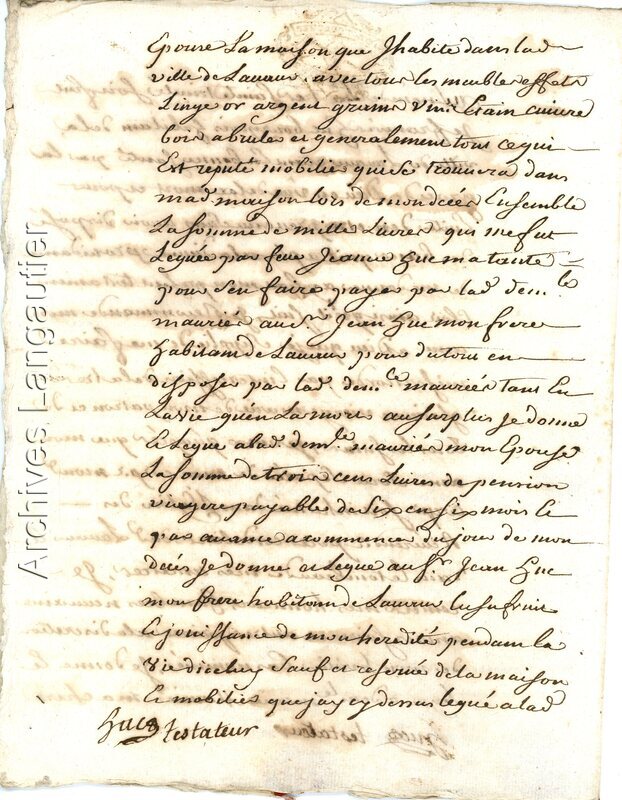 Epouse La maison que Jhabite dans lad.
ville de Lavaur. avec tous les meubles effets
Linge or argent grains vins Etain cuivre
bois a bruler et generalement tous ce qui
Est reputé mobilier qui se trouvera dans
mad. maison lors de mon decés Ensemble
La somme de mille Livres qui me fut
Leguée par feue Jeanne Huc ma tante
pour S'en faire payer par lad. dem.le
mauriés au Sr. Jean Huc mon frere
habitant de Lavaur pour du tout en
disposer par lad. dem.le mauriés tant En
La vie qu'en La mort au surplus je donne
Et Legue a lad. dem.le mauriés mon Epouse
La somme de trois cens Livres de pension
viagere payable de Six en Six mois et
par avance a commencer du jour de mon
decés je donne et Legue au Sr. Jean Huc
mon frere habitant de Lavaur Lusufruit
Et jouissance de mon heredité pendant la
vie diceluy Sauf et reservé de la maison
Et mobilier que jay cy dessus legué a lad.
Huc testateur
Archives Langautier